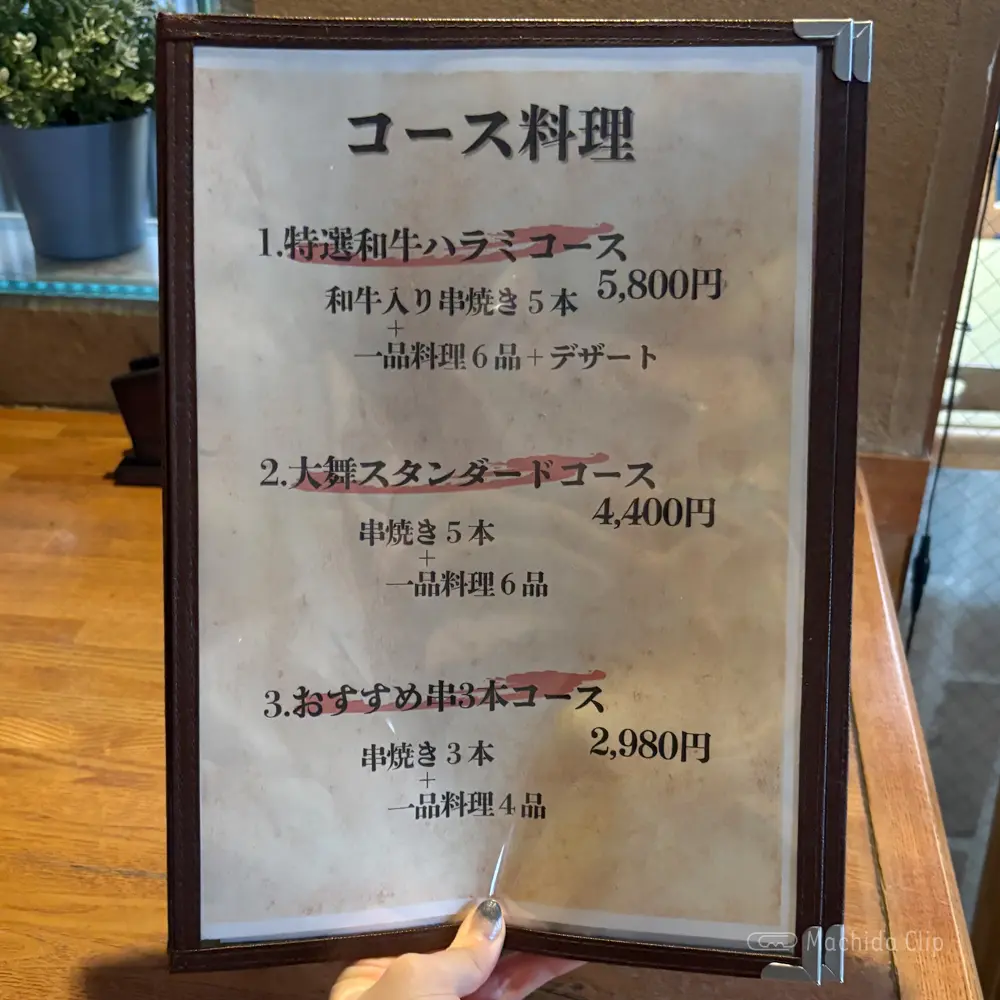 コース料理
1.特選和牛ハラミコース
5,800円
和牛入り串焼き5本
+
一品料理6品+デザート
2.大舞スタンダードコース
4,400円
串焼き5本
+
一品料理6品
3.おすすめ串3本コース
2,980円
串焼き3本
+
一品料理4品
Machida Clip